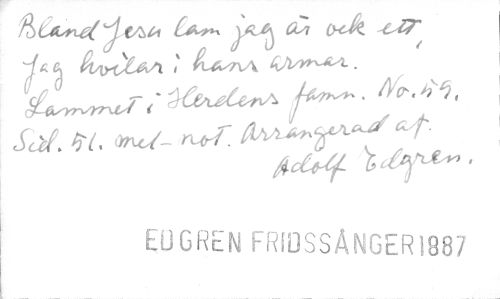 Bland Jesu lam jag är ock ett,
Jag hvilar i hans armar.
Lammet i Herdens famn. No. 59.
Sid. 51. mel-not. Arrangerad af
Adolf Edgren.
EDGREN FRIDSSÅNGER 1887